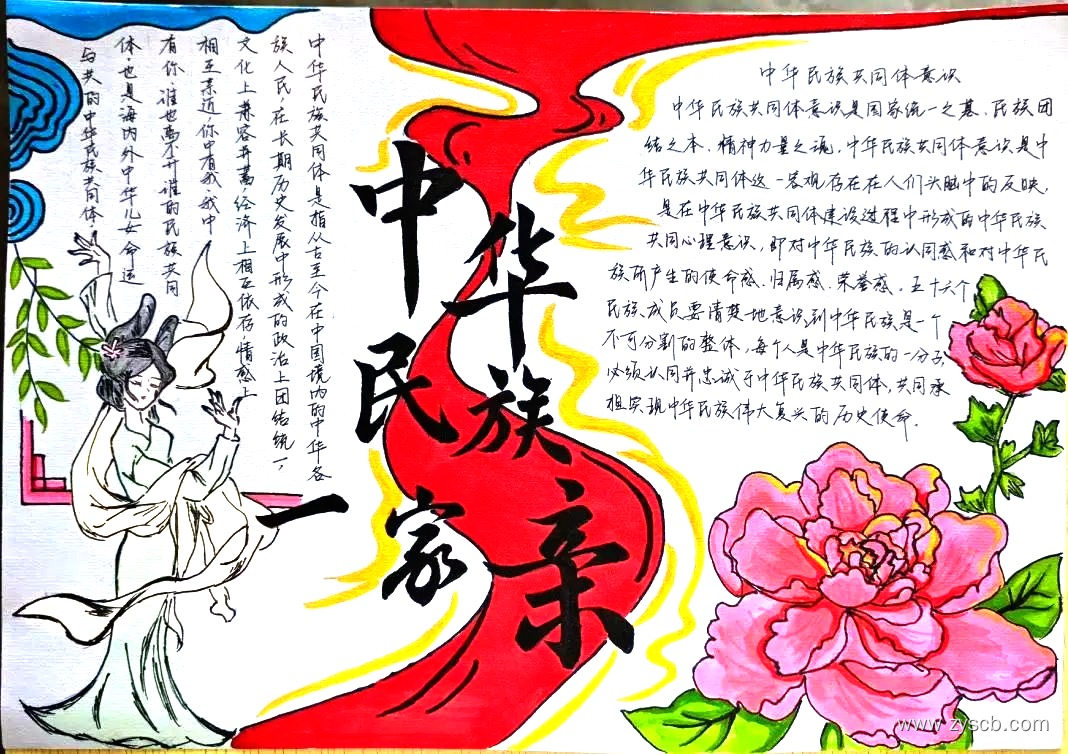 中华民族一家亲
中华民族共同体是指从古至今在中国境内的中华各
族人民,在长期历史发展中形成的政治上团结统一,
文化上兼容并蓄,经济上相互依存,情感上
相互亲近,你中有我,我中
有你,谁也离不开谁的民族共同
体,也是海内外中华儿女命运
与共的中华民族共同体.
中华民族共同体意识
中华民族共同体意识是国家统一之基、民族团
结之本、精神力量之魂,中华民族共同体意识是中
华民族共同体这一客观存在在人们头脑中的反映,
是在中华民族共同体建设过程中形成的中华民族
共同心理意识,即对中华民族的认同感和对中华民
族所产生的使命感、归属感、荣誉感,五十六个
民族成员要清楚地意识到中华民族是一个
不可分割的整体,每个人是中华民族的一分子,
必须认同并忠诚于中华民族共同体,共同承
担实现中华民族伟大复兴的历史使命.
www.zyscb.com